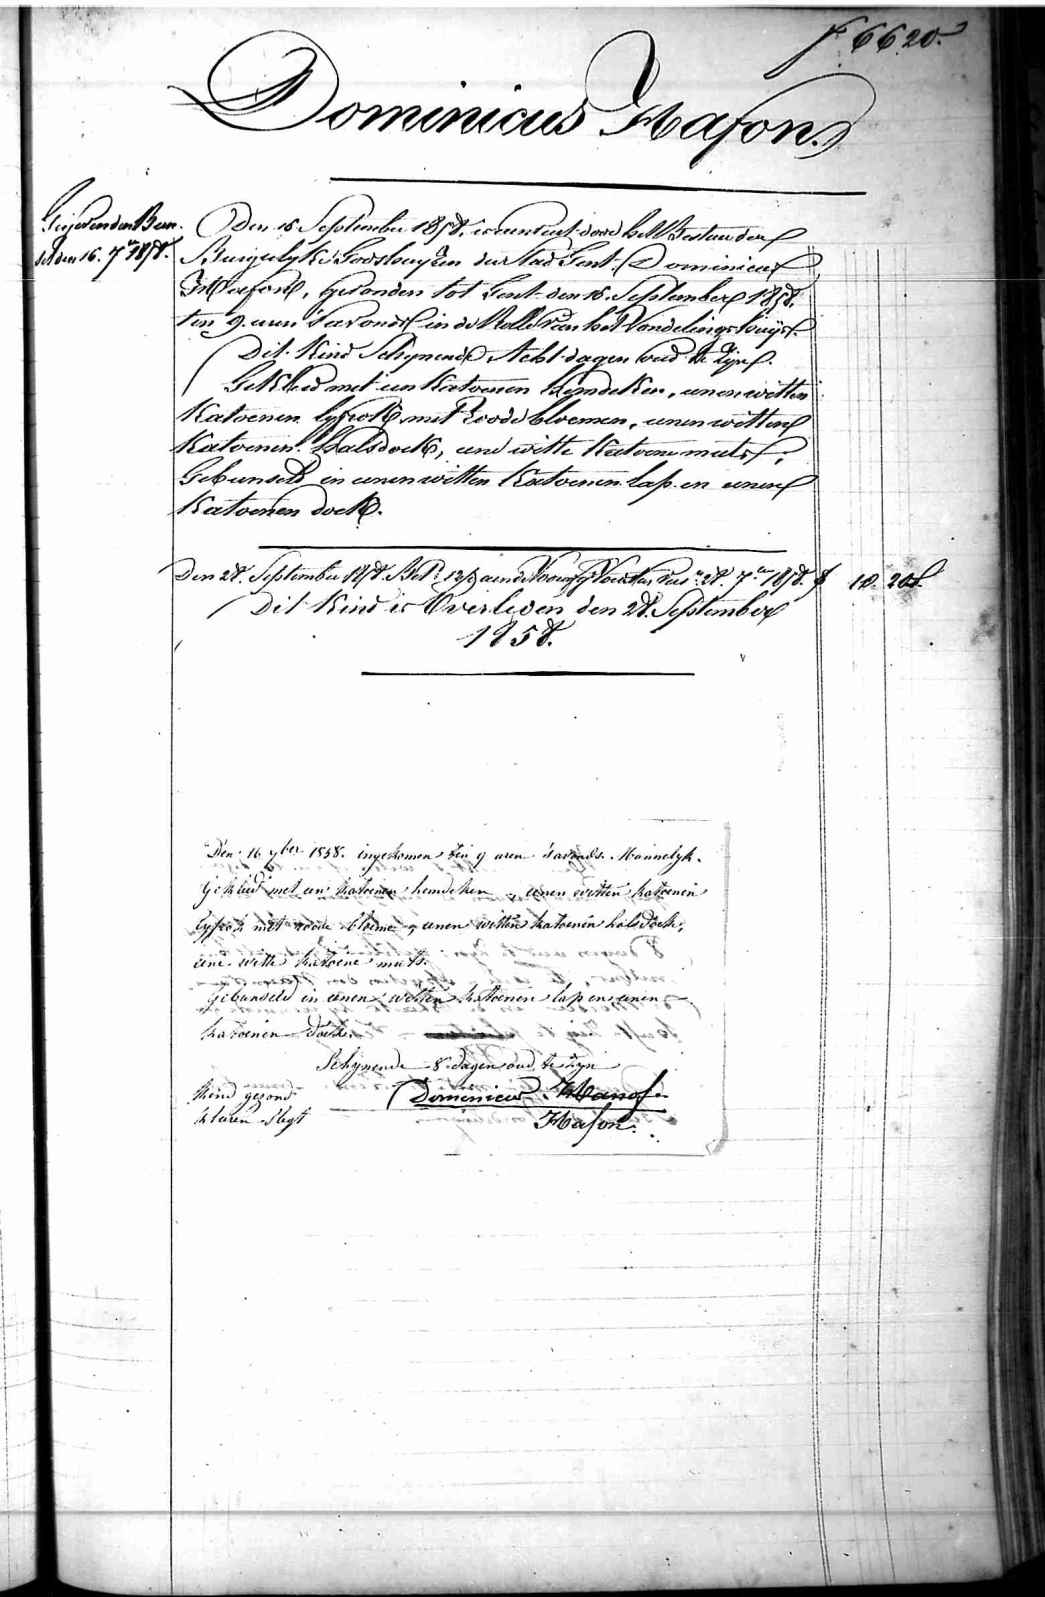 f° 6620.
Dominicus Hafon.
den 16. 7ber 1858.
Den 16 September 1858. is aenveert door het Bestuer der
Burgerlyke Godshuyzen der Stad Gent: Dominicus
Hafon, gevonden tot Gent den 16. September 1858.
ten 9. uren 's avonds in de Rolle van het Vondelingshuys.
Dit Kind Schynende Acht dagen oud te zyn.
Gekleed met een Katoenen hemdeken, eenen witten
Katoenen lyfrok met Roode bloemen, eenen witten
Katoenen halsdoek, eene witte Katoene muts,
Gebunseld in eenen witten Katoenen lap en eenen
Katoenen doek.
Den 28. September 1858. 28. 7ber 1858. f 10. 20
Dit Kind is Overleden den 28. September
1858.
Den 16 7ber 1858. ingekomen ten 9 uren 's avonds. Mannelyk.
Gekleed met een katoenen hemdeken, eenen witten katoenen
lyfrok met roode bloeme, eenen witten katoenen halsdoek,
eene witte katoene muts.
Gebunseld in eenen witten katoenen lap en eenen
katoenen doek.
Schynende 8 dagen oud te zyn
Kind gezond
Dominicus
kleeren slegt
Hafon.